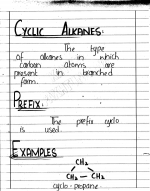 CYCLIC ALKANES:
The type
of alkanes in which
carbon atoms are
present in branched
form.
PREFIX:
The prefix cyclo
is used.
EXAMPLES
CH₂
CH₂ — CH₂
cyclo-propane